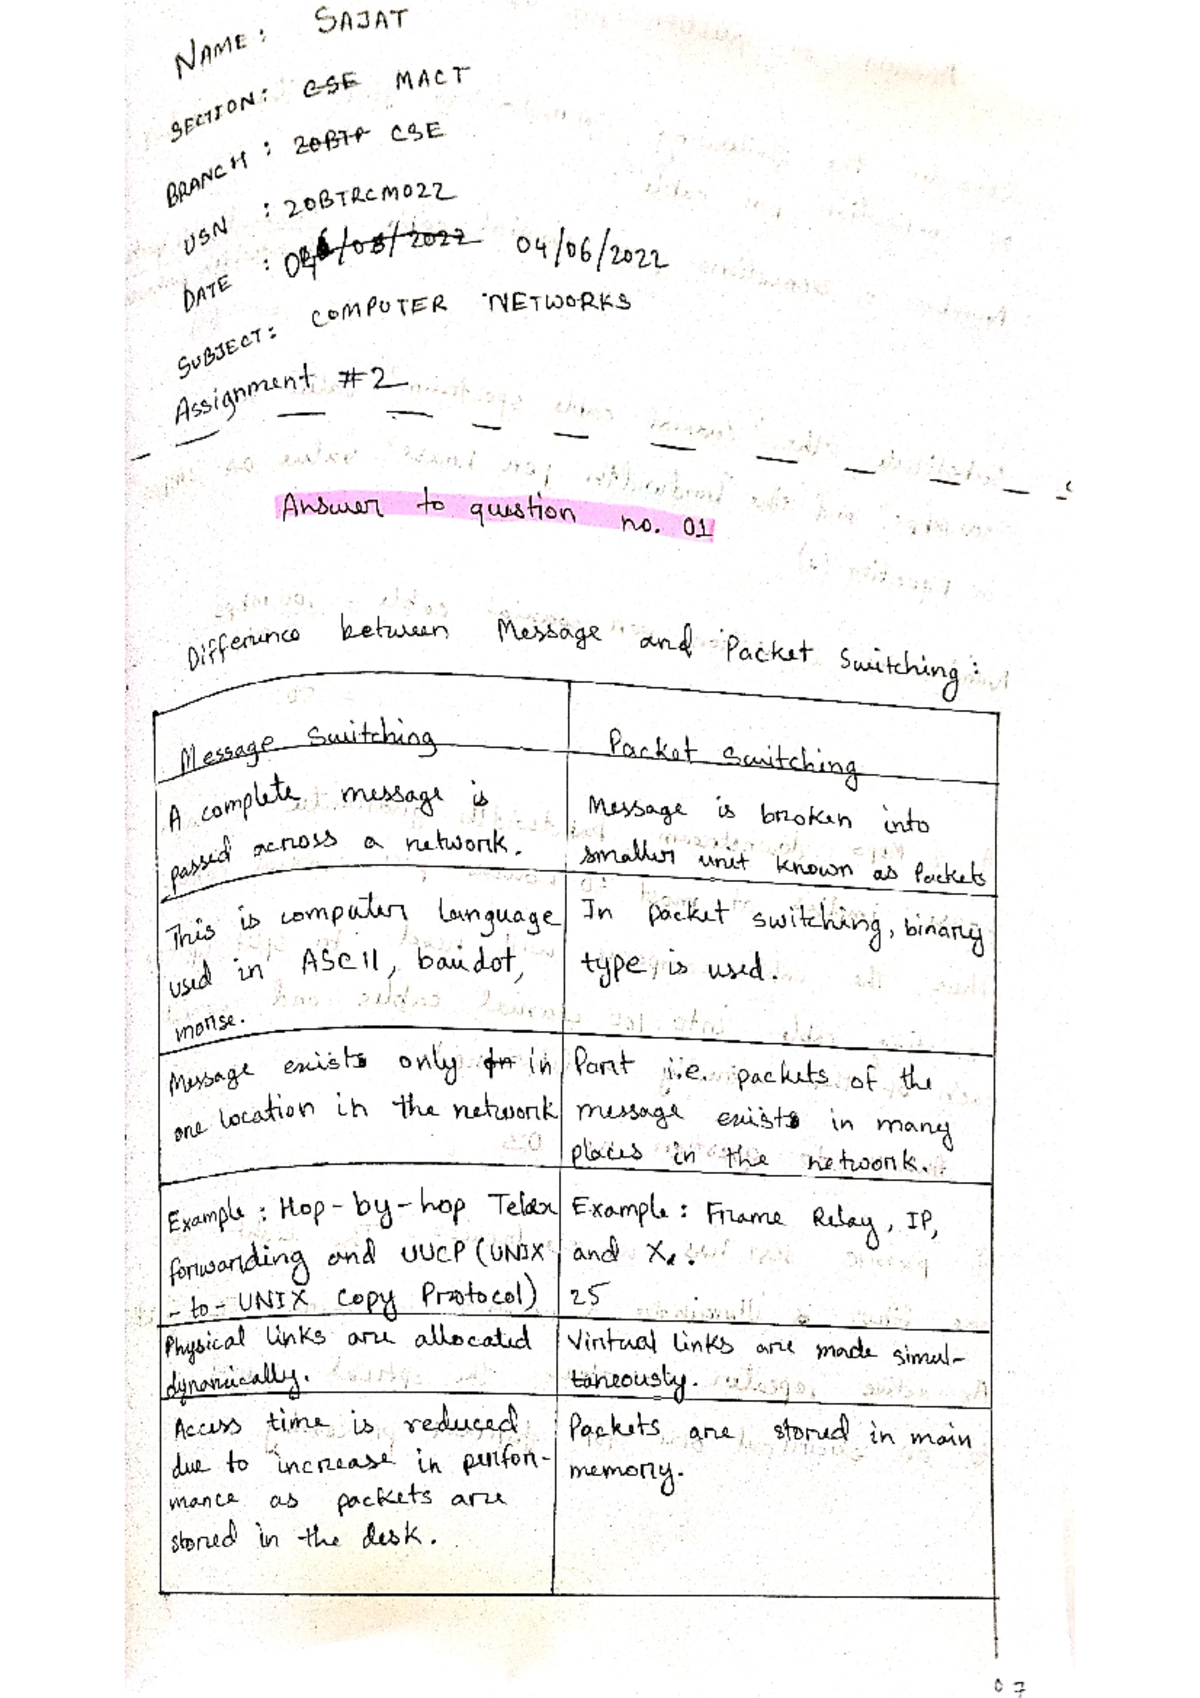 NAME: SAJAT
SECTION: CSE MACT
BRANCH: 20BTR CSE
USN : 20BTRCM022
DATE : 04/06/2022
SUBJECT: COMPUTER NETWORKS
Assignment #2
Answer to question no. 01
Difference between Message and Packet Switching:
Message Switching
Packet Switching
A complete message is
passed across a network.
Message is broken into
smaller unit known as Packets
This is computer language
used in ASCII, baudot,
morse.
In packet switching, binary
type is used.
Message exists only in in
one location in the network
Part i.e. packets of the
message exists in many
places in the network.
Example: Hop-by-hop Telex
forwarding and UUCP (UNIX
-to-UNIX Copy Protocol)
Example: Frame Relay, IP,
and X.
25
Physical links are allocated
dynamically.
Virtual links are made simul-
taneously.
Access time is reduced
due to increase in perfor-
mance as packets are
stored in the desk.
Packets are stored in main
memory.
07